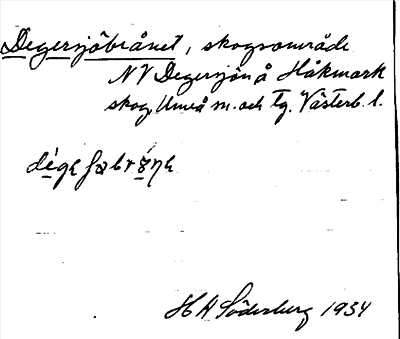 Degersjöbrånet, skogsområde
NV Degersjön å Håkmark
skog, Umeå m. och tg. Västerb. l.
H A Söderberg 1934